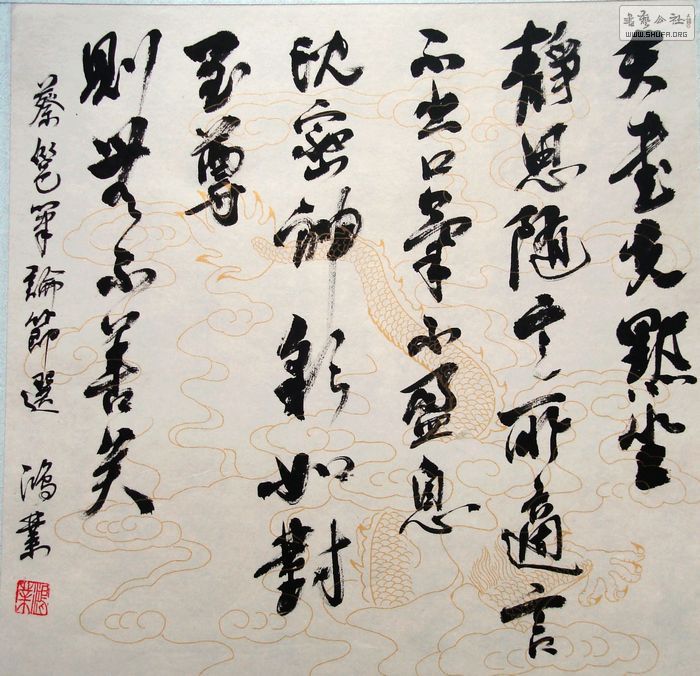 夫書先默坐
靜思随意所適言
不出口氣不盈息
沈密神彩如對
至尊
則無不善矣
蔡邕筆論節選 鴻業
鴻業
書藝公社
WWW.SHUFA.ORG